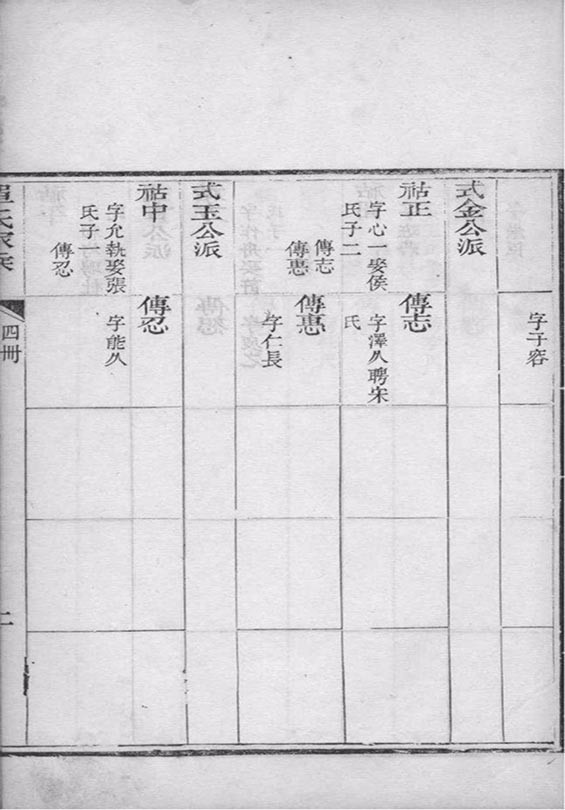 字子容
式金公派
祜正
字心一娶侯
氏子二
傳志
傳惠
傳志
字澤久聘宋
氏
傳惠
字仁長
式玉公派
祜中
字允執娶張
氏子一
傳忍
傳忍
字能久
氏家乘
四冊
二